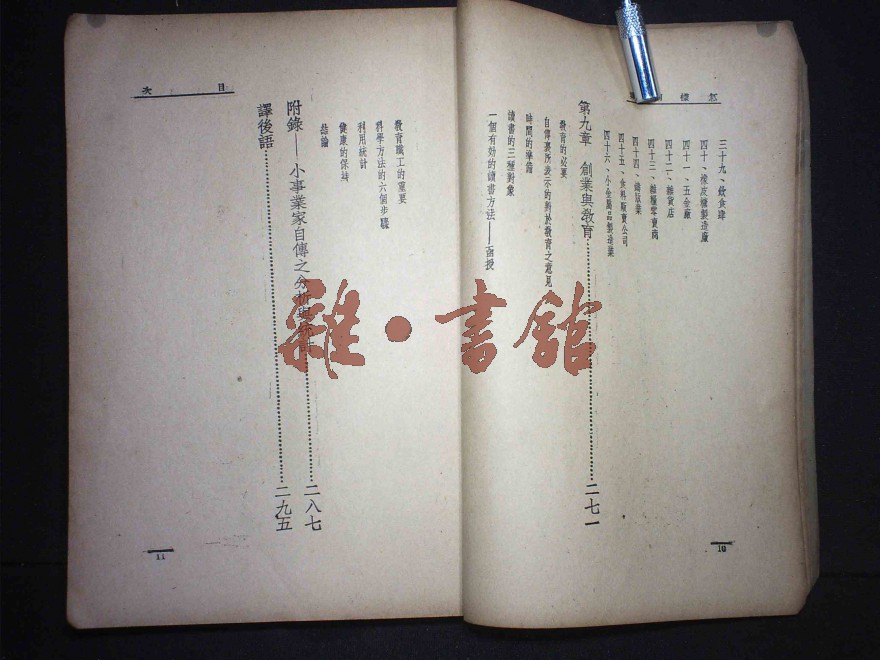 三十九、飲食肆
四十、橡皮糖製造廠
四十一、五金廠
四十二、雜貨店
四十三、雜糧零賣商
四十四、鑄版業
四十五、食料販賣公司
四十六、小金屬品製造業
第九章 創業與教育……二七一
教育的必要
自傳裏所表示的對於教育之意見
時間的準備
讀書的三種對象
一個有効的讀書方法——函授
10
目 次
教育職工的重要
科學方法的六個步驟
利用統計
健康的保持
結論
附錄——小事業家自傳之分析與統計……二八七
譯後語……二九五
11
雜·書館